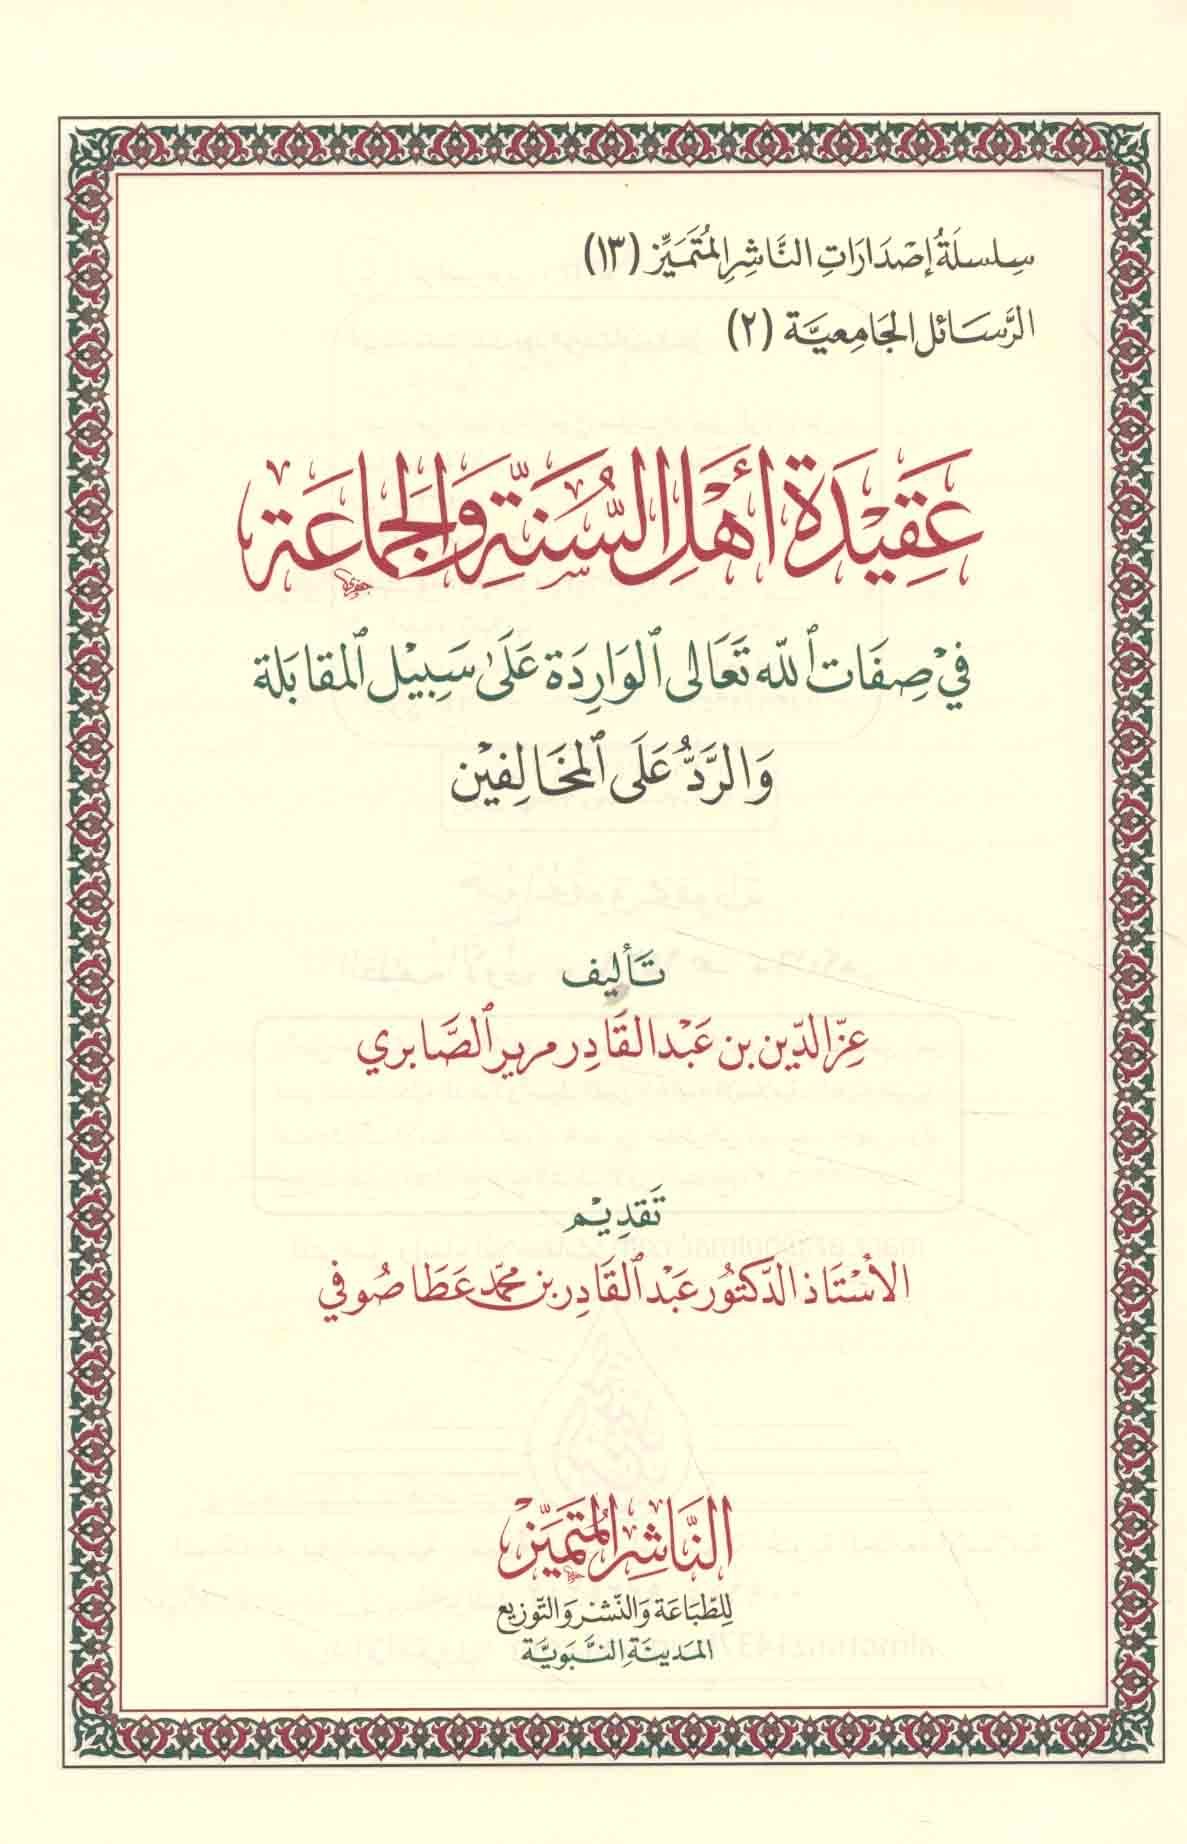 سلسلة إصدارات الناشر المتميز (١٣)
الرسائل الجامعية (٢)
عقيدة أهل السنة والجماعة
في صفات الله تعالى الواردة على سبيل المقابلة
والرد على المخالفين
تأليف
عز الدين بن عبد القادر مرير الصابري
تقديم
الأستاذ الدكتور عبد القادر بن محمد عطا صوفي
الناشر المتميز
للطباعة والنشر والتوزيع
المدينة النبوية